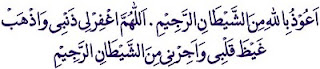 اَعُوْذُ بِاللهِ مِنَ الشَّيْطَانِ الرَّجِيْمِ . اَللّٰهُمَّ اغْفِرْلِى ذَنْبِى وَاذْهَبْ
غَيْظَ قَلْبِى وَاَجِرْنِى مِنَ الشَّيْطَانِ الرَّجِيْمِ